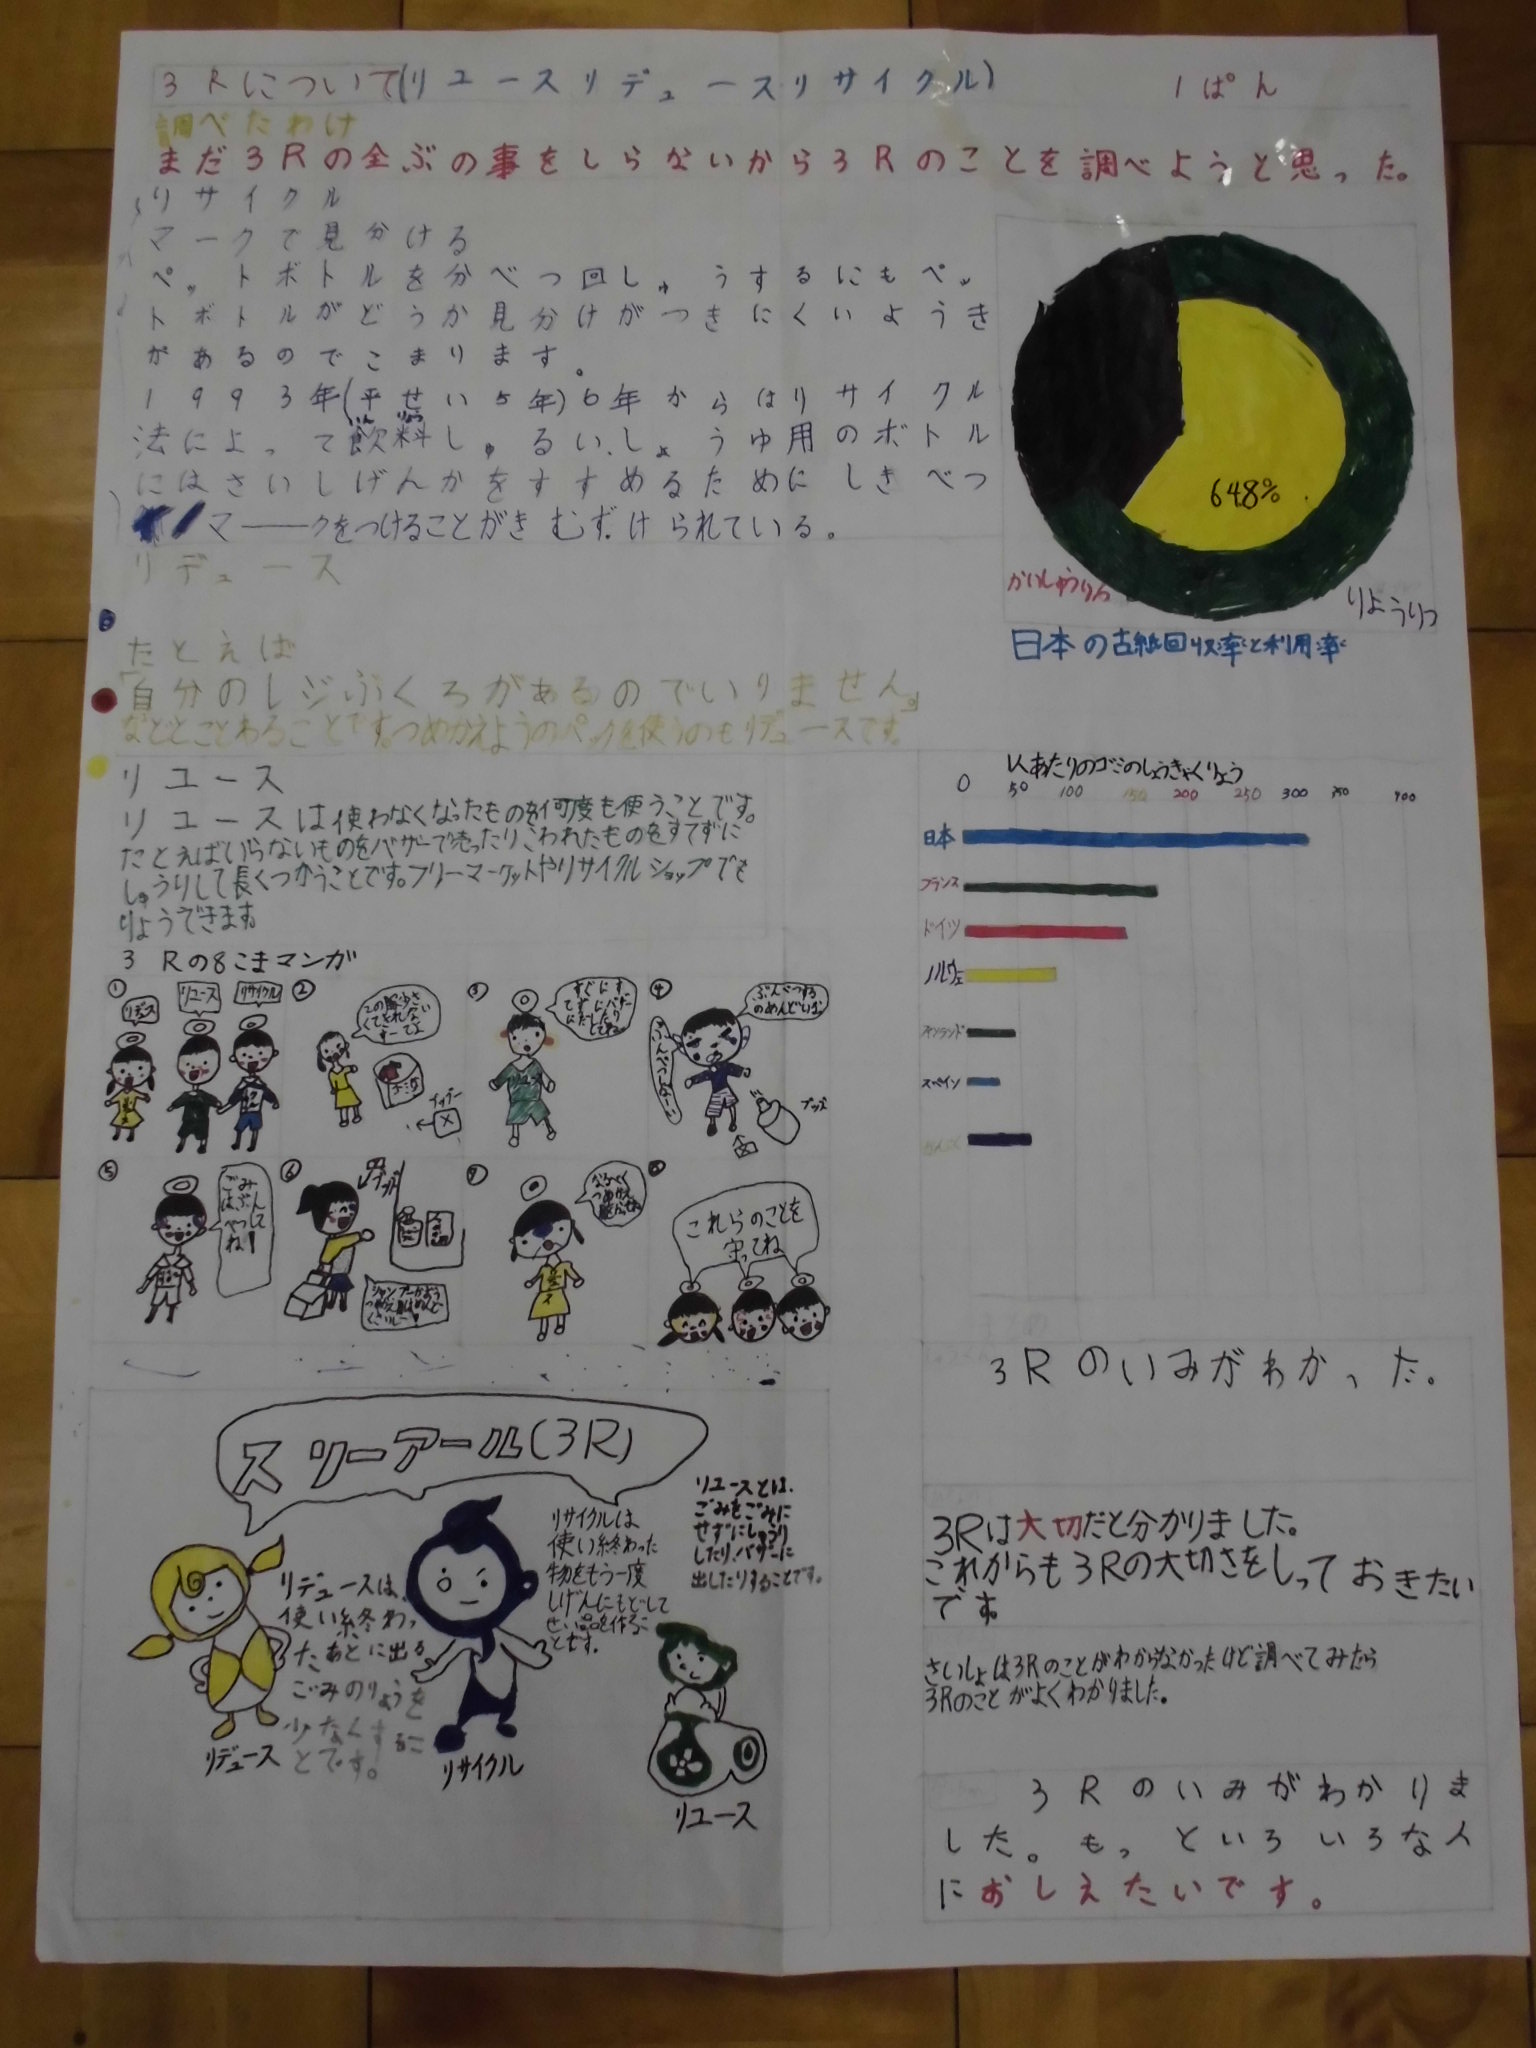 3Rについて(リユースリデュースリサイクル)
1ぱん
調べたわけ
まだ3Rの全ぶの事をしらないから3Rのことを調べようと思った。
リサイクル
マークで見分ける
ペットボトルを分べつ回しゅうするにもペッ
トボトルがどうか見分けがつきにくいようき
があるのでこまります。
1993年(平せい5年)6年からはリサイクル
法によって飲料しゅるい、しょうゆ用のボトル
にはさいしげんかをすすめるためにしきべつ
マークをつけることがきむずけられている。
648%
かいしゅうりつ
りようりつ
日本の古紙回収率と利用率
リデュース
たとえば
「自分のレジぶくろがあるのでいりません。」
などとことわることです。つめかえようのパックを使うのもリデュースです。
リユース
リユースは使わなくなったものを何度も使うことです。
たとえばいらないものをバザーで売ったりこわれたものをすてずに
しゅうりして長くつかうことです。フリーマーケットやリサイクルショップでき
りようできます
1人あたりのゴミのしょうきゃくりょう
0 50 100 150 200 250 300 350 400
日本
フランス
ドイツ
ノルウェ
スペイン
3Rの8こまマンガ
①
リデュース
リユース
リサイクル
②
③
④
ぶんべつする
のめんどいな
⑤
ごみ
はぶんべつしてね!
⑥
⑦
なるべく
つめかえ
⑧
これらのことを
守ってね
スリーアール(3R)
リデュースは、
使い終わっ
たあとに出る
ごみのりょうを
少なくするこ
とです。
リデュース
リサイクルは
使い終わった
物をもう一度
しげんにもどして
せい品を作るこ
とです。
リサイクル
リユースとは、
ごみをごみに
せずにしゅうり
したり、バザーに
出したりすることです。
リユース
3Rのいみがわかった。
3Rは大切だと分かりました。
これからも3Rの大切さをしっておきたい
です
さいしょは3Rのことがわからなかったけど調べてみたら
3Rのことがよくわかりました。
3Rのいみがわかりま
した。もっといろいろな人
におしえたいです。